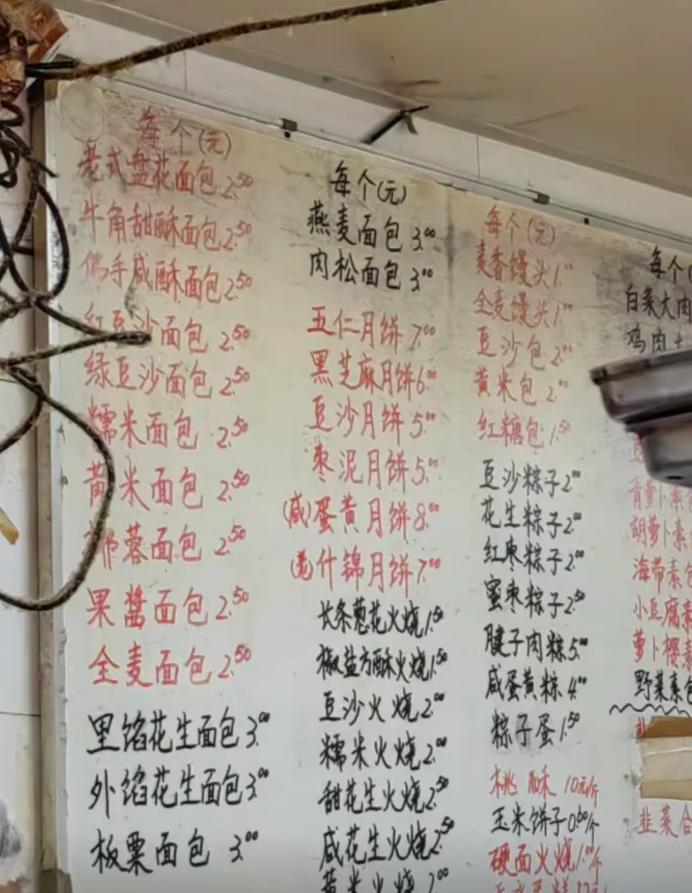 每个(元)
老式盘花面包 2.50
牛角甜酥面包 2.50
佛手咸酥面包 2.50
红豆沙面包 2.50
绿豆沙面包 2.50
糯米面包 2.50
黄米面包 2.50
蓉面包 2.50
果酱面包 2.50
全麦面包 2.50
里馅花生面包 3.00
外馅花生面包 3.00
板栗面包 3.00
每个(元)
燕麦面包 3.00
肉松面包 3.00
五仁月饼 7.00
黑芝麻月饼 6.00
豆沙月饼 5.00
枣泥月饼 5.00
(咸)蛋黄月饼 8.00
什锦月饼 7.00
长条葱花火烧 1.50
椒盐方酥火烧 1.50
豆沙火烧 2.00
糯米火烧 2.00
甜花生火烧 2.50
咸花生火烧 2.50
黄米火烧 2.00
每个(元)
麦香馒头 1.00
全麦馒头 1.00
豆沙包 2.00
黄米包 2.00
红糖包 1.50
豆沙粽子 2.00
花生粽子 2.00
红枣粽子 2.00
蜜枣粽子 2.50
腱子肉粽 5.00
咸蛋黄粽 4.00
粽子蛋 1.50
桃酥 10元/斤
玉米饼子 0.80/个
硬面火烧 1.00/个
每个(
白菜大肉
鸡肉
青萝卜素
胡萝卜素
海带素包
小豆腐素
萝卜樱素
野菜素包
韭菜合